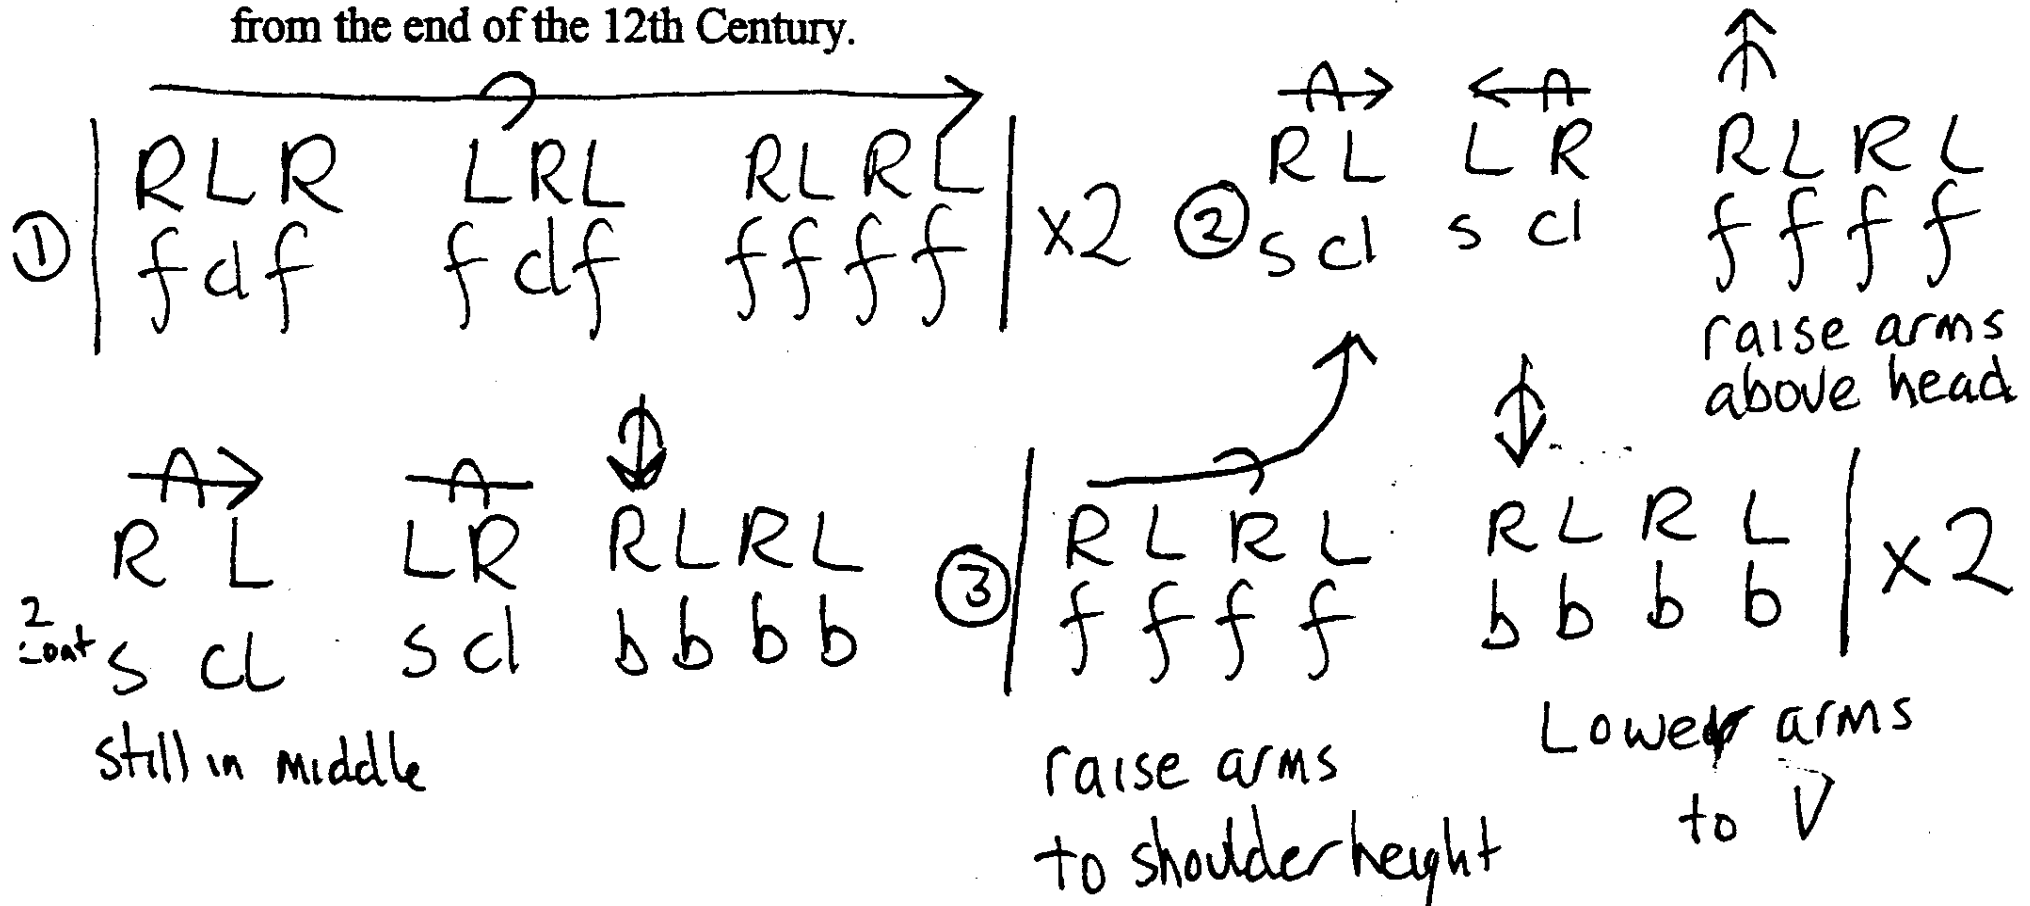 from the end of the 12th Century.
① | R L R L R L R L R L | x2
f d f f d f f f f f
② R L L R R L R L
s cl s cl f f f f
raise arms
above head
R L L R R L R L
2 cont s cl s cl b b b b
still in middle
③ | R L R L R L R L | x2
f f f f b b b b
raise arms
to shoulder height
Lower arms
to V